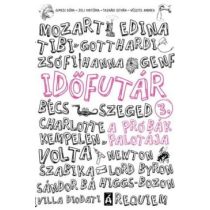 GIMESI DÓRA • JELI VIKTÓRIA • TASNÁDI ISTVÁN • VÉSZITS ANDREA
MOZART EDINA
TIBI-GOTTHARDI
ZSÓFI HANNA GENF
IDŐFUTÁR
BÉCS SZEGED 3.
CHARLOTTE A PRÓBÁK
KEMPELEN PALOTÁJA
VOLTA NEWTON
SZABIKA LORD BYRON
SÁNDOR BÁ HIGGS-BOZON
VILLA DIODATI A REQUIEM